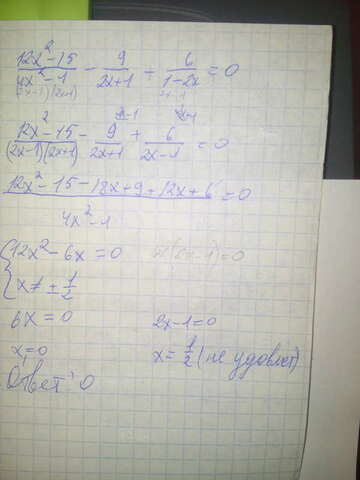 12x² - 15 / 4x² - 1 - 9 / 2x+1 - 6 / 1-2x = 0
(2x-1)(2x+1)
12x² - 15 / (2x-1)(2x+1) - 9 / 2x+1 + 6 / 2x-1 = 0
12x² - 15 - 18x + 9 + 12x + 6 / 4x² - 1 = 0
{ 12x² - 6x = 0 6x(2x-1)=0
x ≠ ± 1/2
6x = 0 2x-1=0
x=0 x = 1/2 (не удовлет)
Ответ: 0